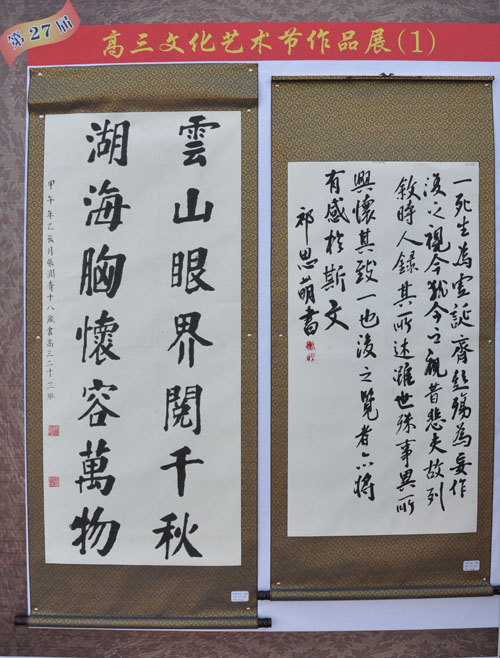 第27届
高三文化艺术节作品展(1)
雲山眼界閱千秋
湖海胸懷容萬物
甲午年乙亥月十八歲書高三二十三班
一死生為虛誕齊彭殤為妄作
後之視今猶今之視昔悲夫故列
敘時人錄其所述雖世殊事異所
興懷其致一也後之覽者亦將
有感於斯文
祁思萌書